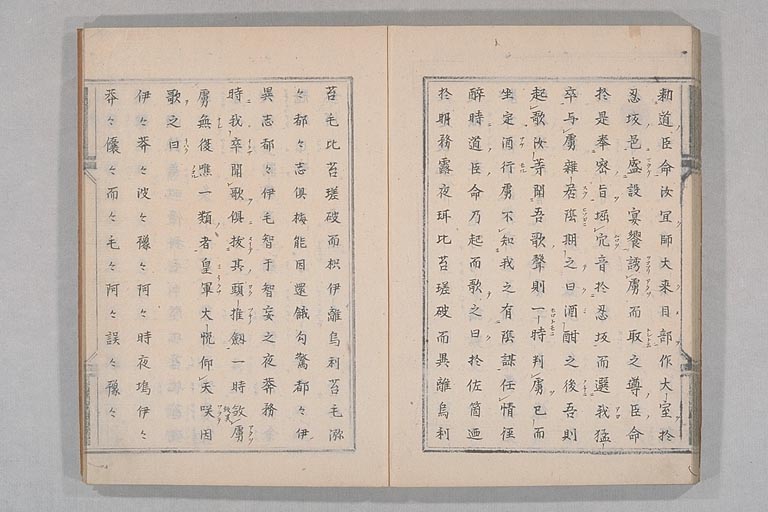 勅道臣命汝宜師大来目部作大室於
忍坂邑盛設宴饗誘虜而取之導臣命
於是奉密旨堀穴音於忍坂而選我猛
卒与虜雜居陰期之曰酒酣之後吾則
起歌汝等聞吾歌聲則一時判虜已而
坐定酒行虜不知我之有陰謀任情徑
酔時道臣命乃起而歌之曰於佐箇廼
於明務露夜珥比苔瑳破而異離烏利
苔毛比苔瑳破而枳伊離烏利苔毛瀰
々都々志倶梅能因還餓勾驚都々伊
異志都々伊毛智于智妄之夜莽務会
時我卒聞歌倶抜其頭推劔一時敘虜
虜無復噍一類者皇軍大悦仰天咲因
歌之曰
伊々莽々波々豫々阿々時夜塢伊々
莽々儾々而々毛々阿々誤々豫々